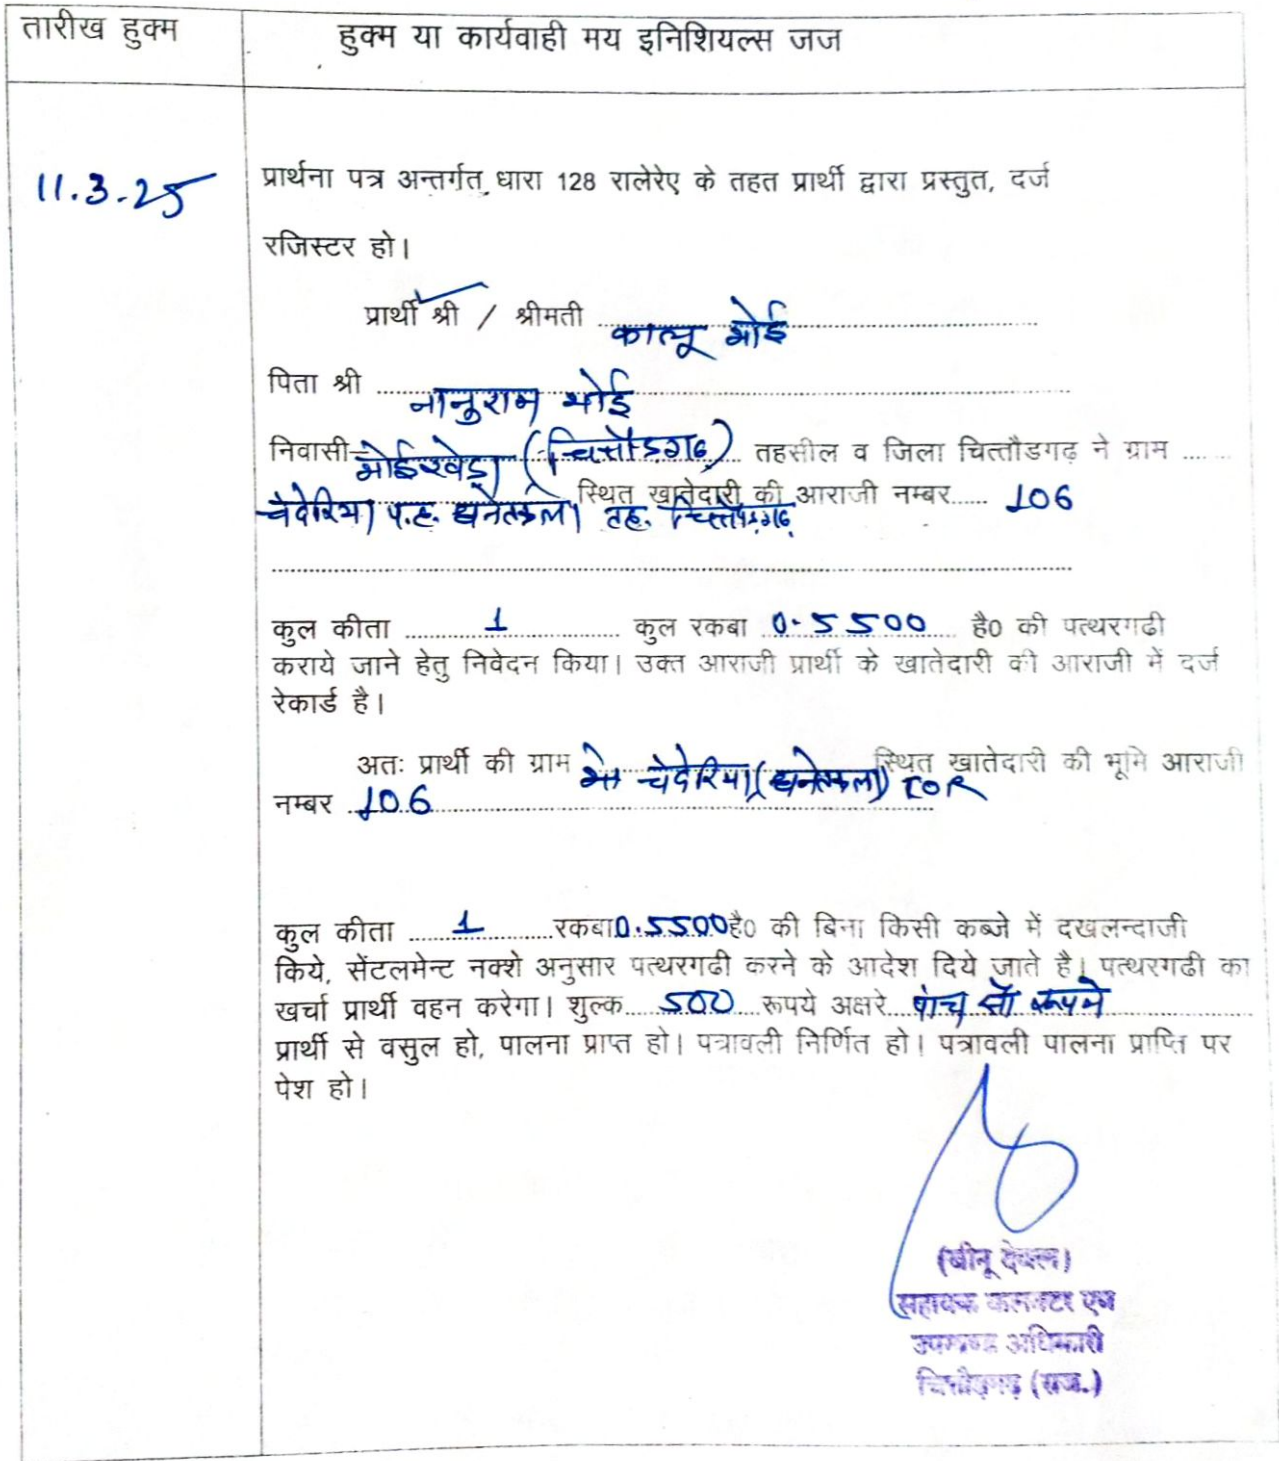 तारीख हुक्म
हुक्म या कार्यवाही मय इनिशियल्स जज
11.3.25
प्रार्थना पत्र अन्तर्गत धारा 128 रालेरेए के तहत प्रार्थी द्वारा प्रस्तुत, दर्ज
रजिस्टर हो।
प्रार्थी श्री / श्रीमती कालू भोई
पिता श्री नानुराम भोई
निवासी भोईखेडा (चित्तौडगढ) तहसील व जिला चित्तौडगढ़ ने ग्राम
स्थित खातेदारी की आराजी नम्बर 106
चंदेरिया प.ह. तह. चित्तौडगढ
कुल कीता 1 कुल रकबा 0.5500 है0 की पत्थरगढी
कराये जाने हेतु निवेदन किया। उक्त आराजी प्रार्थी के खातेदारी की आराजी में दर्ज
रेकार्ड है।
अतः प्रार्थी की ग्राम चंदेरिया स्थित खातेदारी की भूमि आराजी
नम्बर 106
कुल कीता 1 रकबा 0.5500 है0 की बिना किसी कब्जे में दखलन्दाजी
किये, सेंटलमेन्ट नक्शे अनुसार पत्थरगढी करने के आदेश दिये जाते है। पत्थरगढी का
खर्चा प्रार्थी वहन करेगा। शुल्क 500 रूपये अक्षरे पांच सौ रूपये
प्रार्थी से वसुल हो, पालना प्राप्त हो। पत्रावली निर्णित हो। पत्रावली पालना प्राप्ति पर
पेश हो।
(बीनू देवल)
सहायक कलक्टर एवं
उपखण्ड अधिकारी
चित्तौड़गढ़ (राज.)